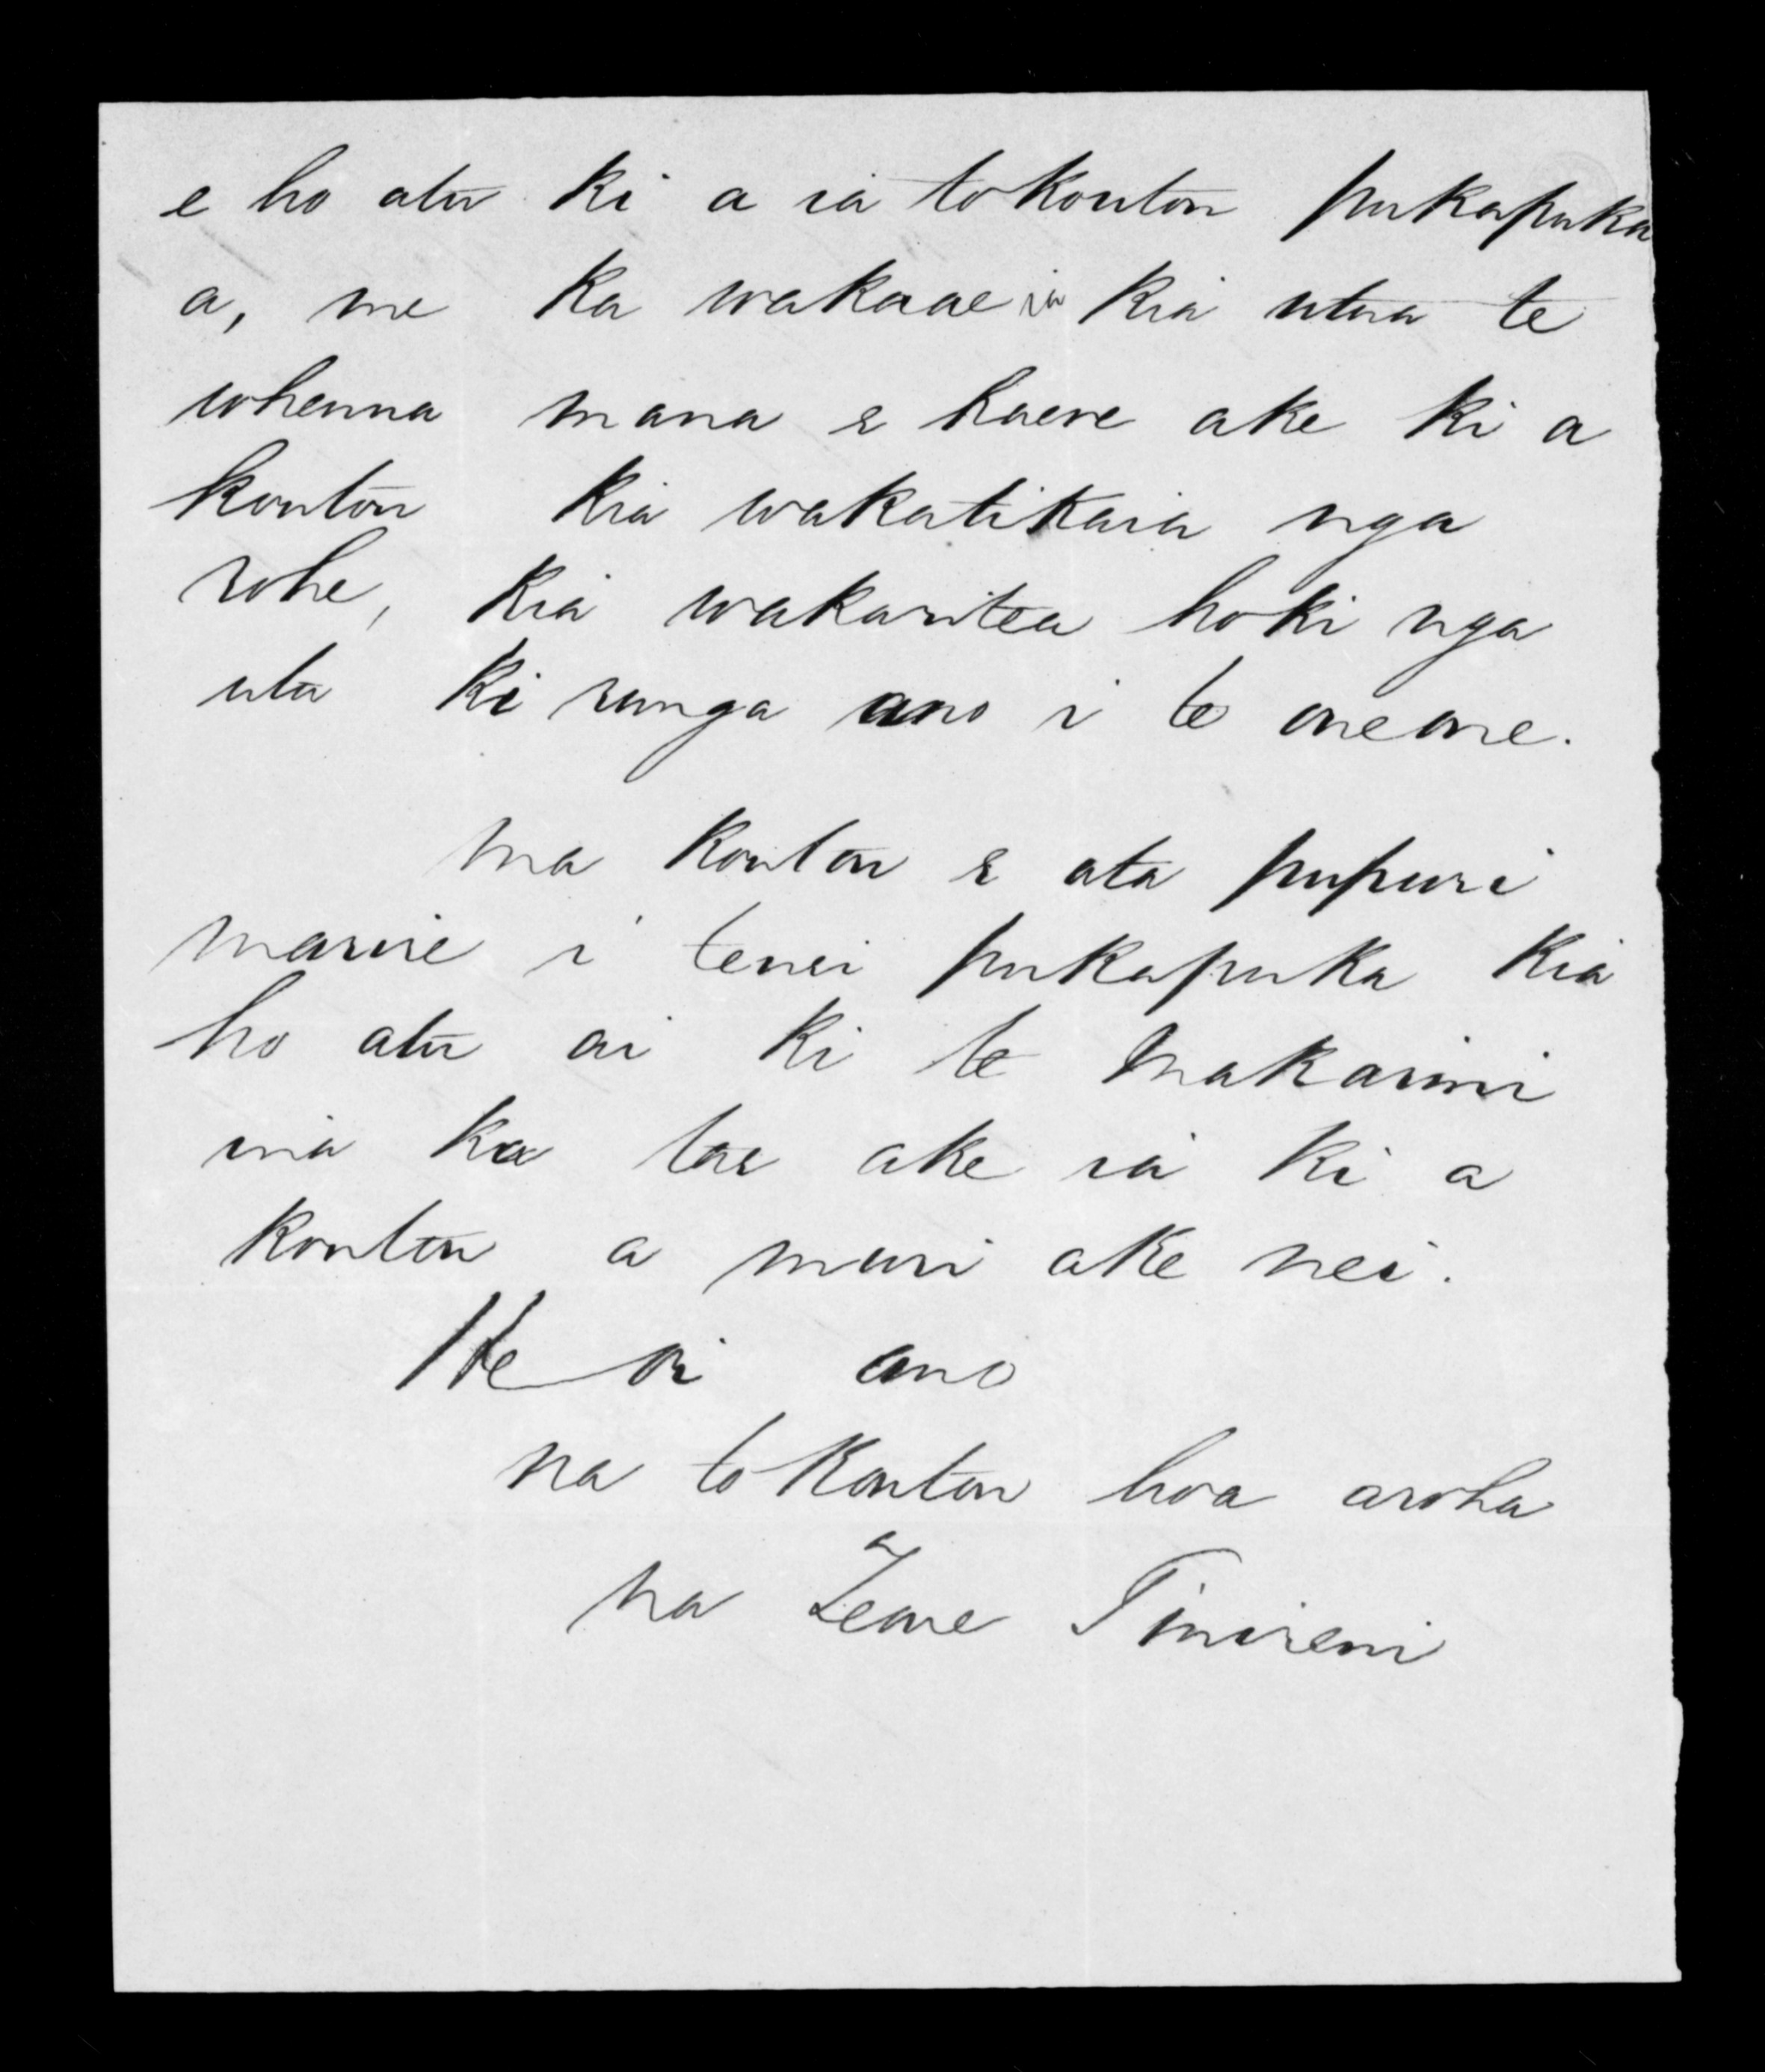 e ho atu ki a ia to koutou pukapuka
a, me ka wakaae ia kia utua te
whenua mana e haere ake ki a
koutou kia wakatikaia nga
rohe, kia wakaritea hoki nga
utu ki runga ano i te oneone.
Ma koutou e ata pupuri
marire i tenei pukapuka kia
ho atu ai ki te Makarini
ina ka tae ake ia ki a
koutou a muri ake nei.
He oi ano
na to koutou hoa aroha
na Teone Timireni